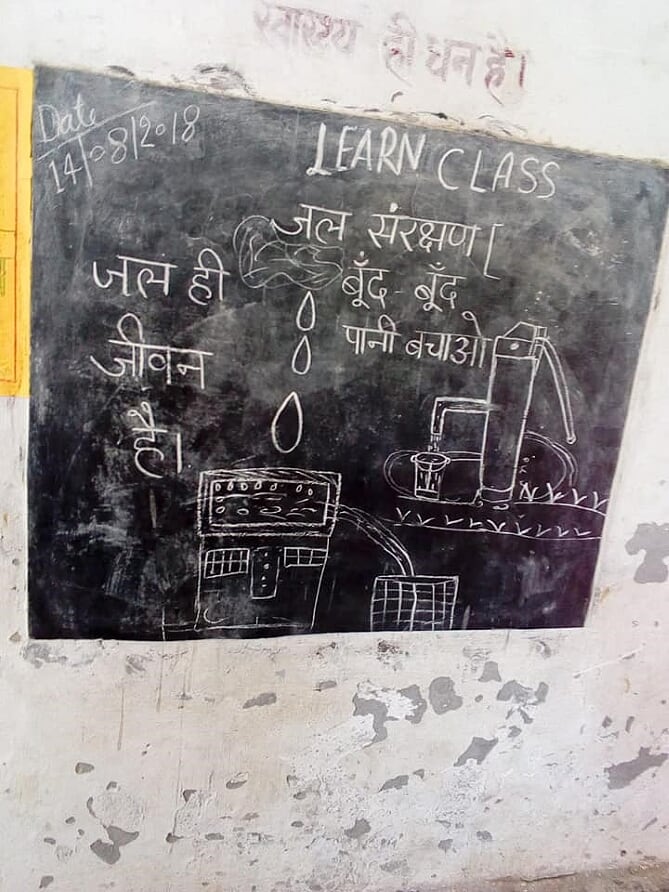 स्वास्थ्य ही धन है।
Date
14/08/2018
LEARN CLASS
जल संरक्षण
बूँद - बूँद
पानी बचाओ
जल ही
जीवन
है।